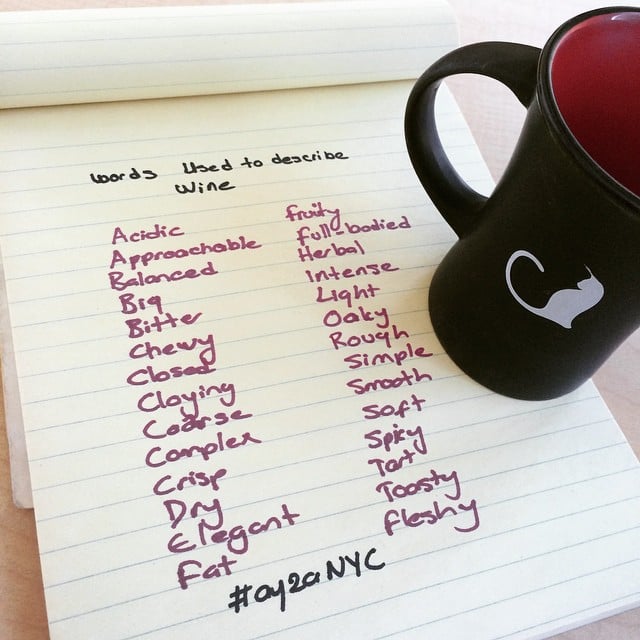 words Used to describe
Wine
Acidic
Approachable
Balanced
Big
Bitter
Chewy
Closed
Cloying
Coarse
Complex
Crisp
Dry
Elegant
Fat
fruity
full-bodied
Herbal
Intense
Light
Oaky
Rough
Simple
Smooth
Soft
Spicy
Tart
Toasty
fleshy
#ay2aNYC